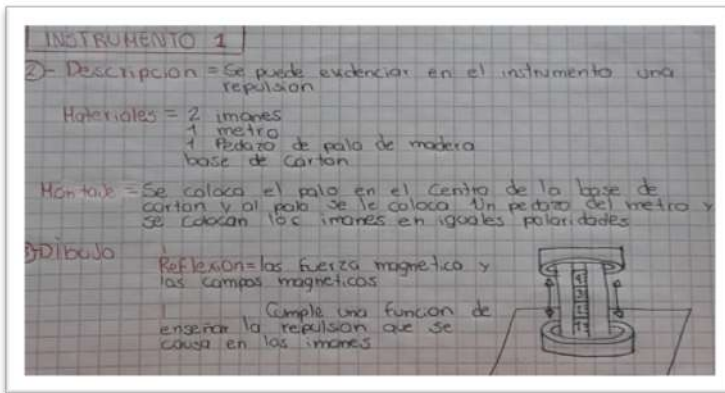 INSTRUMENTO 1
2)- Descripcion = Se puede evidenciar en el instrumento una
repulsion
Materiales = 2 imanes
1 metro
1 Pedazo de palo de madera
base de carton
Montaje = Se coloca el palo en el centro de la base de
carton y al palo se le coloca un pedazo del metro y
se colocan los imanes en iguales polaridades
3)Dibujo
Reflexion = las fuerza magnetica y
los campos magneticos
Cumple una funcion de
enseñar la repulsion que se
causa en los imanes